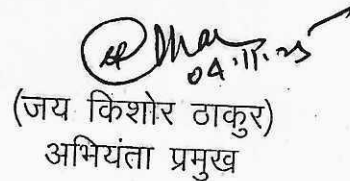 04.11.25
(जय किशोर ठाकुर)
अभियंता प्रमुख